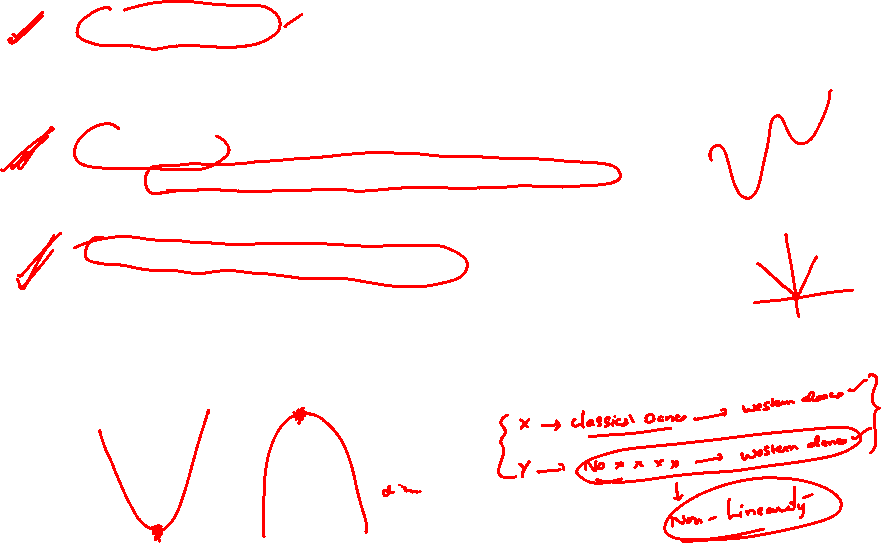 X → Classical Dance → western dance
Y → No x x x x → western dance
Non-Linearity